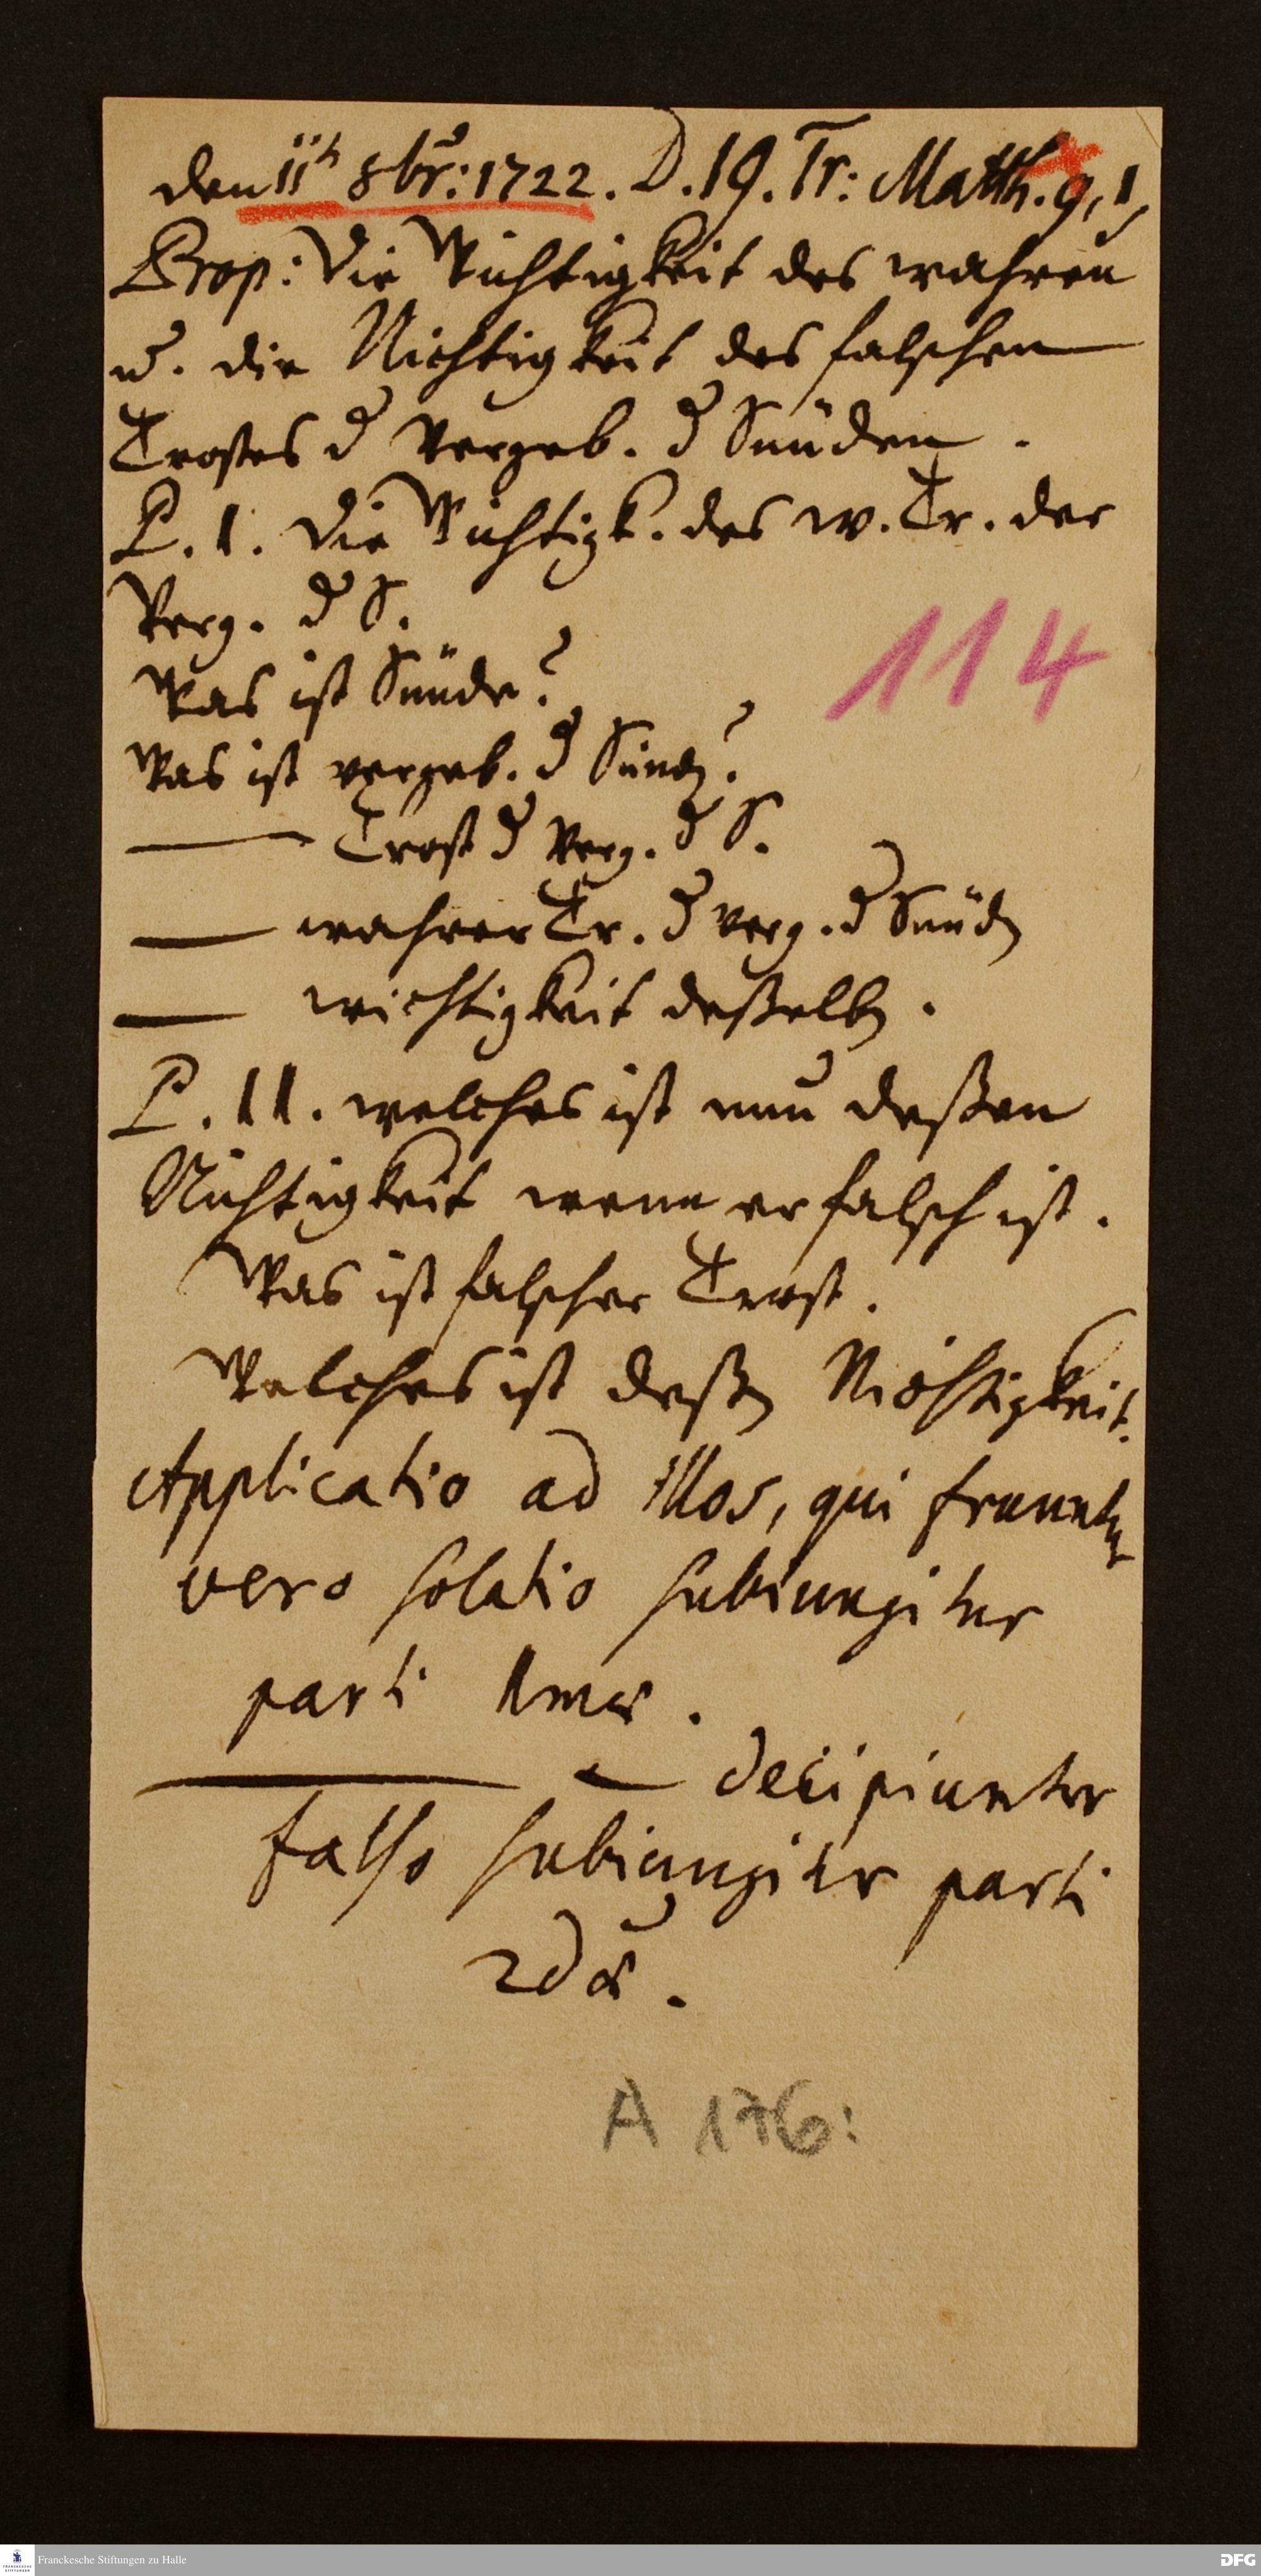 den 11t 8br: 1722. D. 19. Tr: Matth. 9, 1,
Prop: Die Wichtigkeit des wahren
u. die Nichtigkeit des falschen
Trostes d Vergeb. d Sünden.
P. I. Die Wichtigk. des w. Tr. der
Verg. d S.
114
Was ist Sünde?
Was ist vergeb. d Sünd?
— Trost d Verg. d S.
— wahrer Tr. d verg. d Sünd
— wichtigkeit deßelb.
P. II. welches ist nun deßen
Nichtigkeit wenn er falsch ist.
Was ist falscher Trost.
Welches ist deßen Nichtigkeit.
Applicatio ad illos, qui fruuntur
vero solatio subiungitur
parti 1mæ.
— — decipiuntur
falso subiungitur parti
2dæ.
A 176:
Franckesche Stiftungen zu Halle
DFG